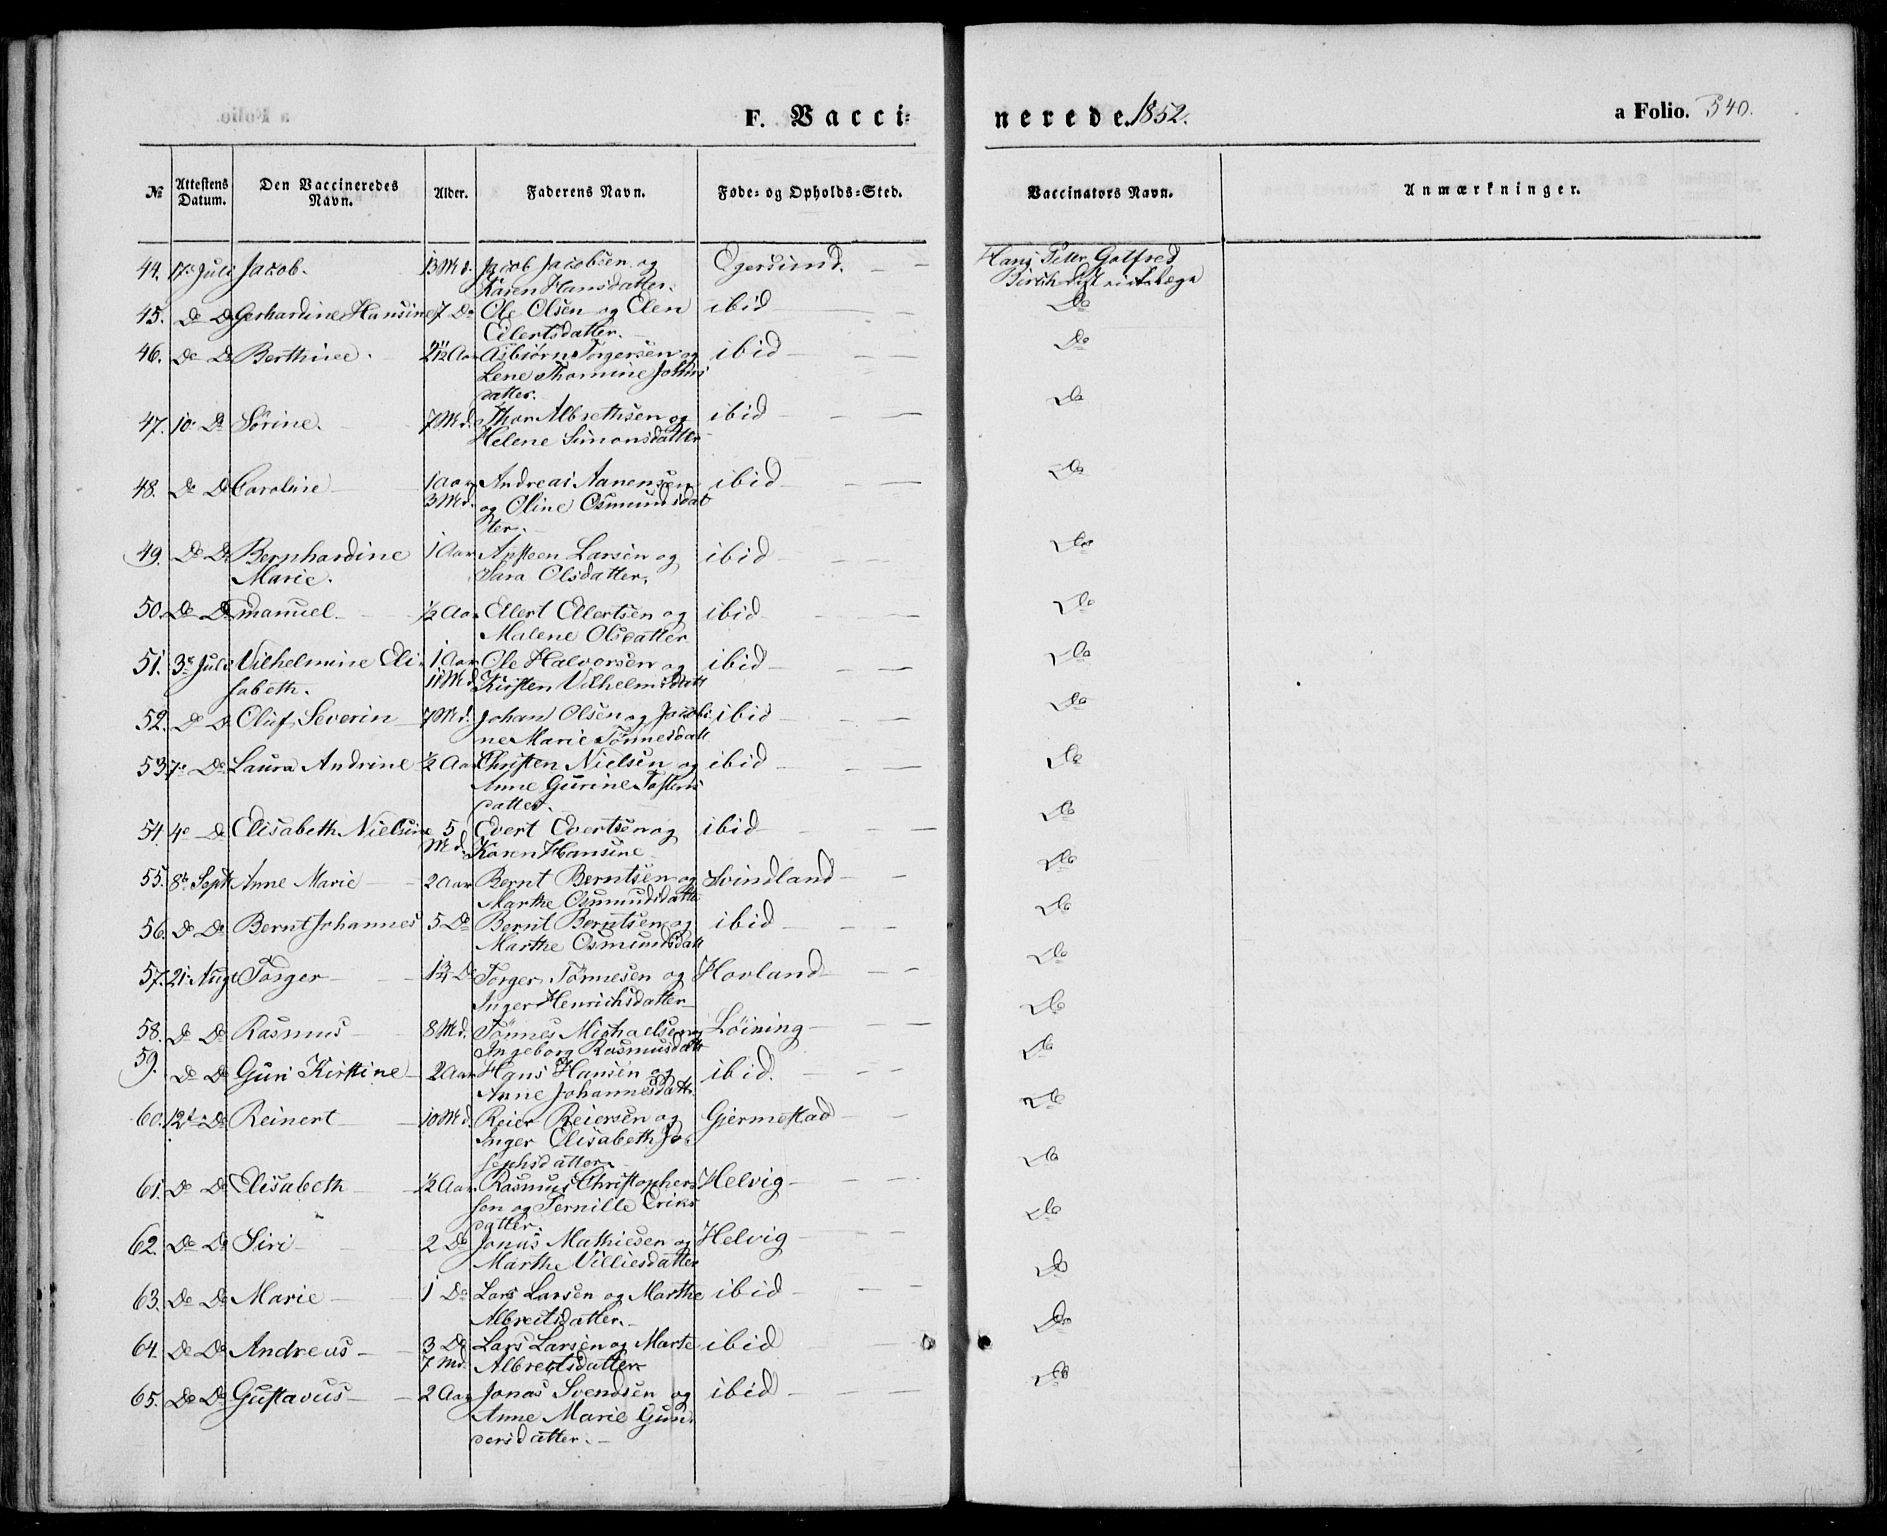 F. Vacci-
nerede. 1852.
a Folio. 540.
№ Attestens Datum. Den Vaccineredes Navn. Alder. Faderens Navn. Føde- og Opholds-Sted. Vaccinators Navn. Anmærkninger.
44. 17. Juli Jacob. 13 Md. Jacob Jacobsen og Egersund. Hans Peter Gotfred
Karen Hansdatter. Birch Districtslæge
45. Do Do Gerhardine Hansine 7 Do Ole Olsen og Elen ibid Do
Eilertsdatter.
46. Do Do Berthine. 2 1/2 Aar Asbiørn Torgersen og ibid Do
Lene Thomine Johns
datter.
47. 10. Do Sørine. 7 Md. Thor Albrethsen og ibid Do
Helene Simonsdatter
48. Do Do Caroline 1 Aar Andreas Aanensen ibid Do
3 Md. og Oline Osmundsdat
ter.
49. Do Do Bernhardine 1 Aar Apsteen Larsen og ibid Do
Marie. Sara Olsdatter.
50. Do Do Emanuel 1/2 Aar Ellert Ellertsen og ibid Do
Malene Olsdatter
51. 3e Juli Vilhelmine Eli- 1 Aar Ole Halvorsen og ibid Do
sabeth. 11 Md Kirsten Vilhelmsdatt
52. Do Do Oluf Severin 7 Md. Johan Olsen og Jacobi ibid Do
ne Marie Tönnesdatt
53. 7e Do Laura Andrine 1/2 Aar Christen Nielsen og ibid Do
Anne Gurine Tostens
datter.
54. 4e Do Elisabeth Nielsine 5 Evert Evertsen og ibid Do
Md. Karen Hansine
55. 8e Septb Anne Marie 2 Aar Bernt Berntsen og Svindland Do
Marthe Osmundsdatt
56. Do Do Bernt Johannes 5 Do Bernt Berntsen og ibid Do
Marthe Osmundsdatt
57. 21. Aug. Torger 1 3/4 Do Torger Tönnesen og Hovland Do
Inger Henrichsdatter
58. Do Do Rasmus 8 Md. Tönnes Michaelsen Löining Do
Ingeborg Rasmusdatt
59. Do Do Guri Kirstine 2 Aar Hans Hansen og ibid. Do
Anne Johannesdatt
60. 12te Do Reinert 10 Md. Reier Reiersen og Gjermestad Do
Inger Elisabeth Jo-
sephsdatter
61. Do Do Elisabeth 1/2 Aar Rasmus Christopher Helvig Do
sen og Pernille Eriks
datter.
62. Do Do Siri 2 Do Jonas Mathiesen og Helvig Do
Marthe Villiesdatter
63. Do Do Marie 1 Do Lars Larsen og Marthe ibid Do
Albreitsdatter.
64. Do Do Andreas 3 Do Lars Larsen og Marte ibid Do
7 Md. Albrertsdatter
65. Do Do Gustavus 2 Aar Jonas Svendsen og ibid Do
Anne Marie Gun-
dersdatter.